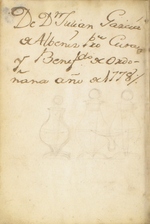 De Dn Julian Garcia
de Albeniz pbro Cura
y Benefdo de Ordo-
ñana año de 1778/